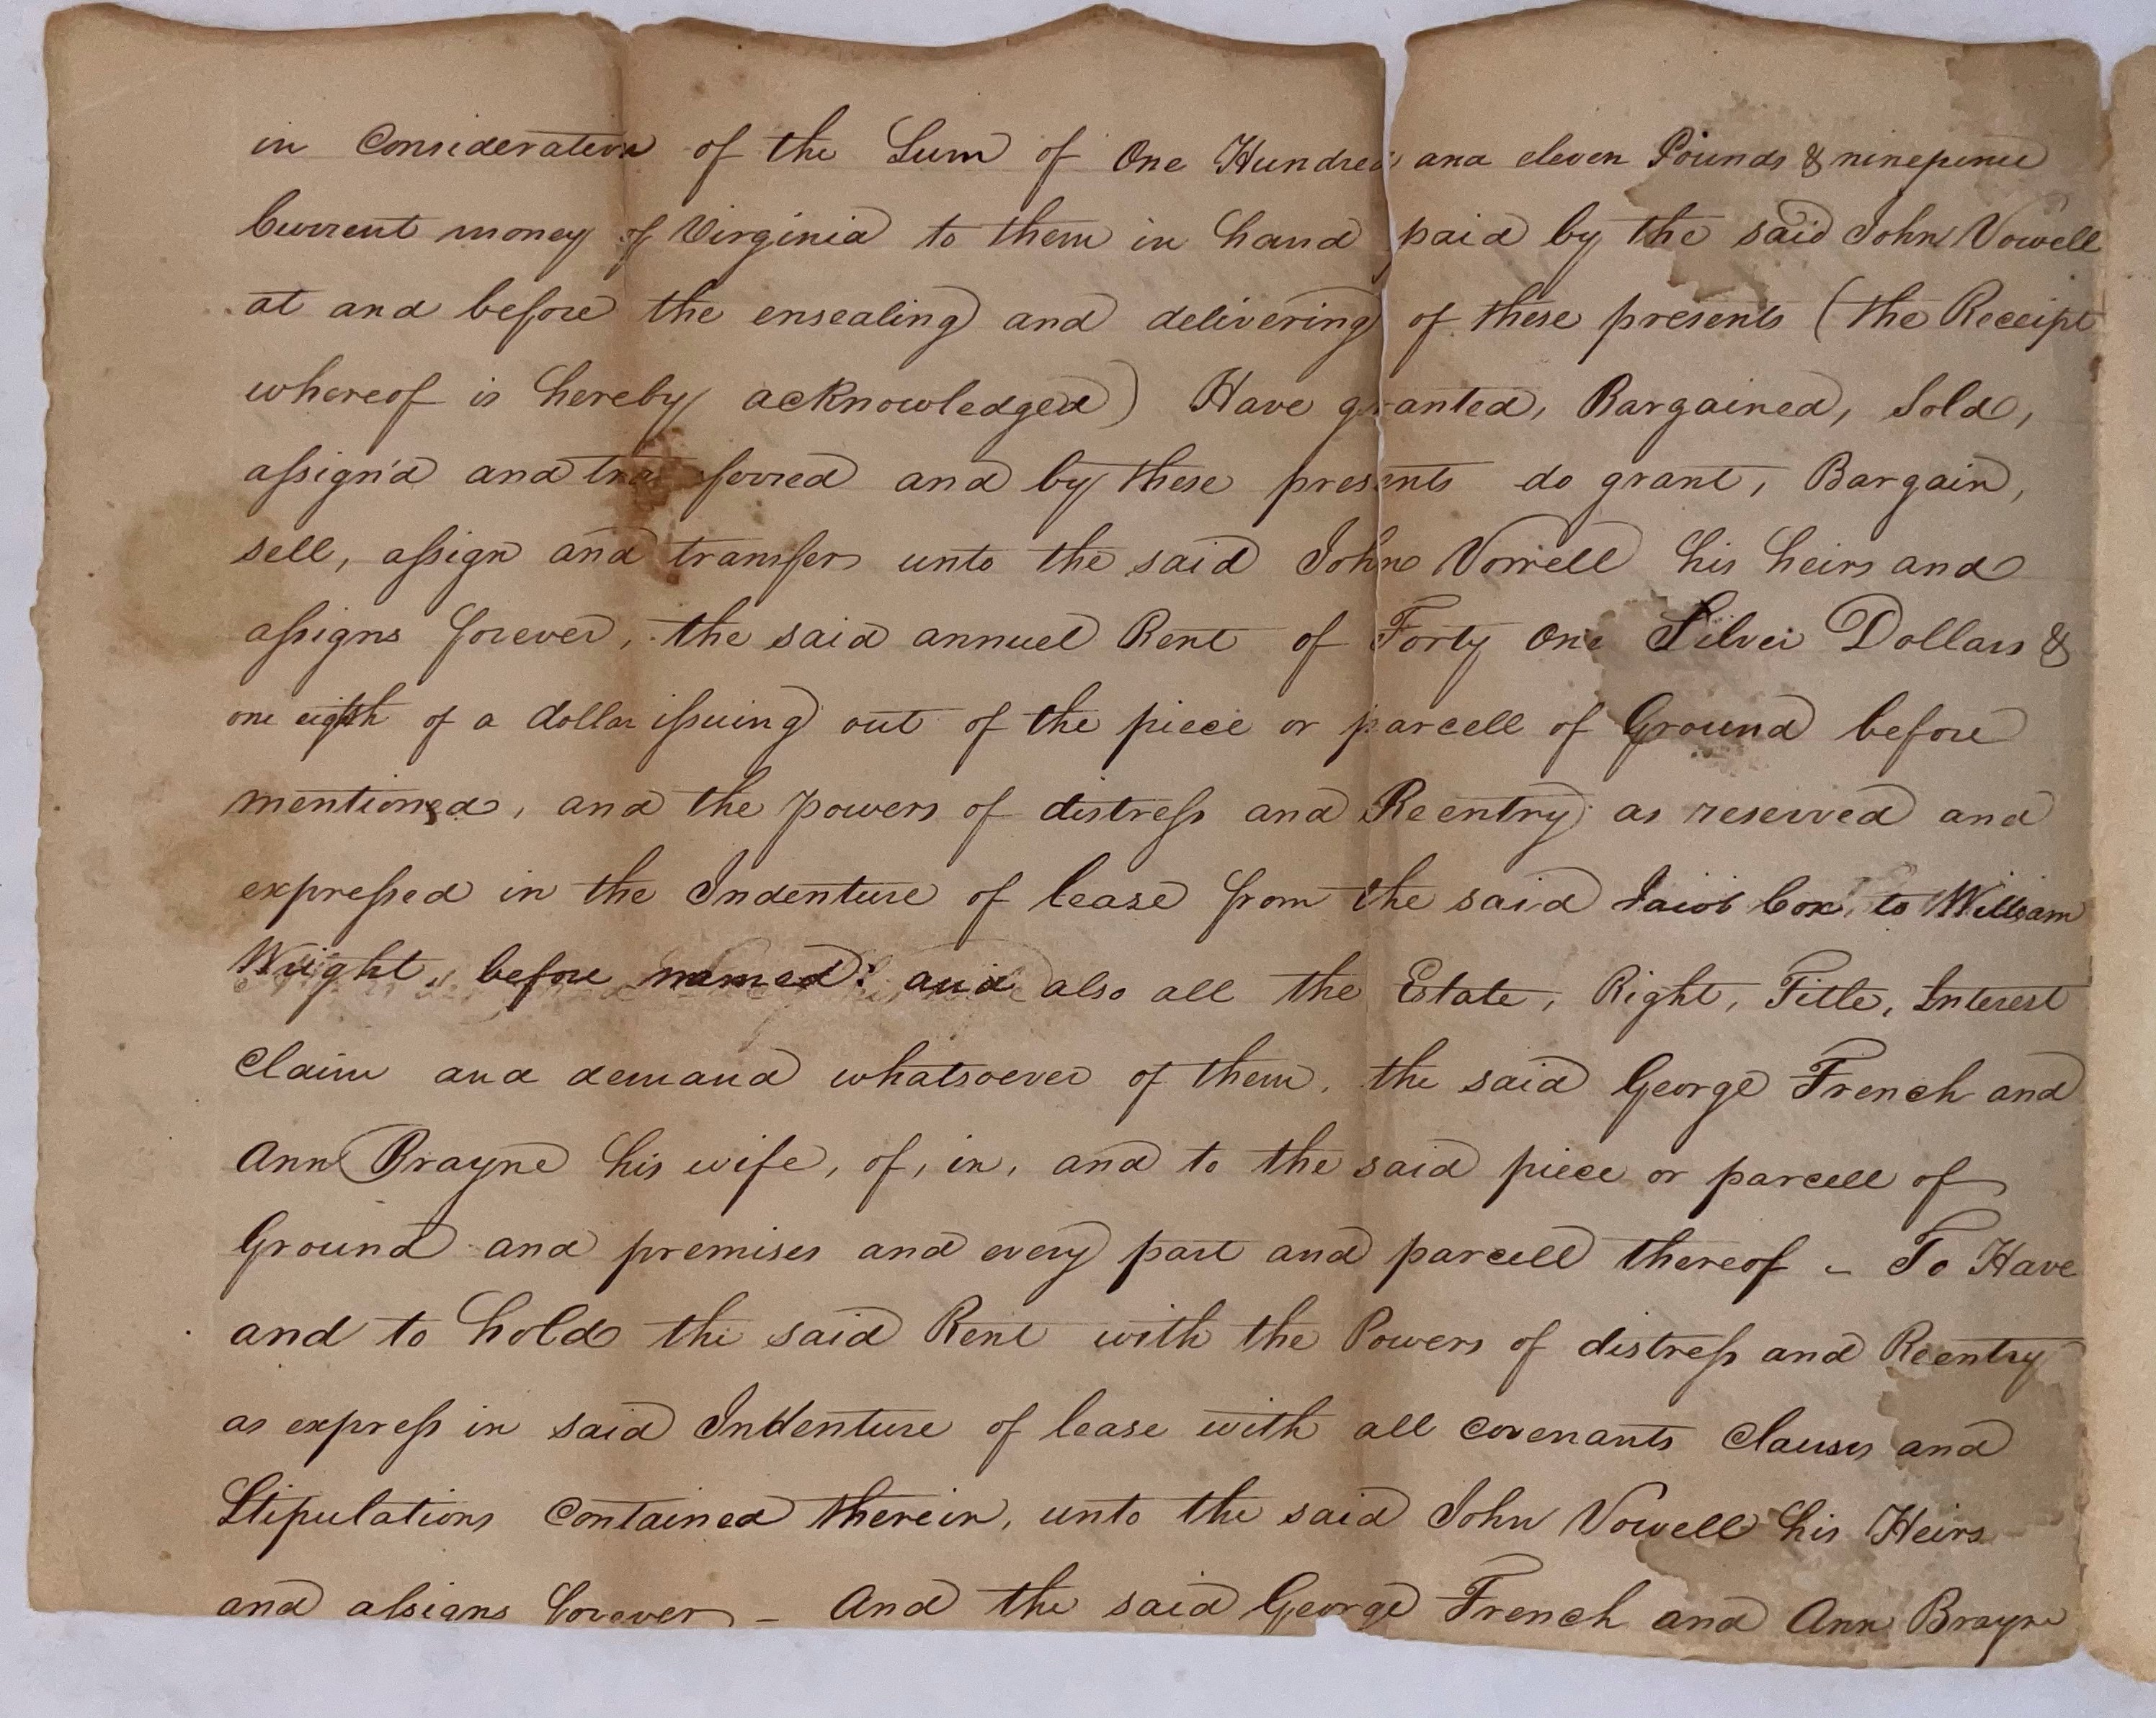 in Consideration of the Sum of One Hundred and eleven Pounds & ninepence
Current money of Virginia to them in hand paid by the said John Vowell
at and before the ensealing and delivering of these presents (the Receipt
whereof is hereby acknowledged) Have granted, Bargained, Sold,
aſsign'd and transferred and by these presents do grant, Bargain,
sell, aſsign and transfer unto the said John Vowell his heirs and
aſsigns forever, the said annuel Rent of Forty One Silver Dollars &
one eighth of a dollar iſsuing out of the piece or parcell of Ground before
mentioned, and the powers of distreſs and Reentry as reserved and
expreſsed in the Indenture of lease from the said Jacob Cox, to William
Wright, before named: and also all the Estate, Right, Title, Interest
Claim and demand whatsoever of them, the said George French and
Ann Brayne his wife, of, in, and to the said piece or parcell of
Ground and premises and every part and parcell thereof - To Have
and to hold the said Rent with the Powers of distreſs and Reentry
as expreſs in said Indenture of lease with all covenants Clauses and
Stipulations Contained therein, unto the said John Vowell his Heirs
and aſsigns forever - And the said George French and Ann Brayne